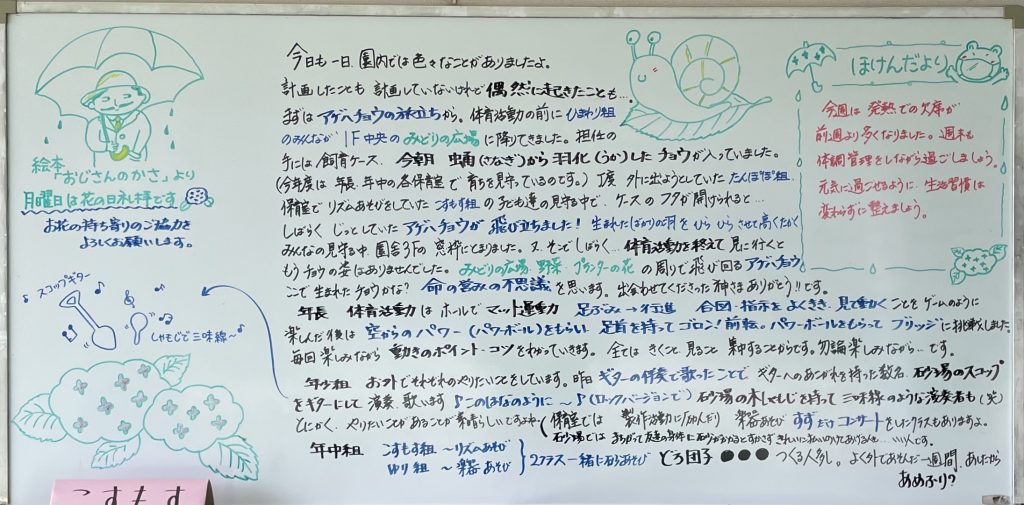 絵本
「おじさんのかさ」より
月曜日は花の日礼拝です
お花の持ち寄りのご協力を
よろしくお願いします。
スコップギター
しゃもじで三味線〜♪
こすもす
今日も一日、園内では色々なことがありましたよ。
計画したことも 計画していないけれど偶然に起きたことも…
まずはアゲハチョウの旅立ちから。体育活動の前にひまわり組
のみんなが 1F中央のみどりの広場に降りてきました。担任の
手には飼育ケース。今朝 蛹(さなぎ)から羽化(うか)したチョウが入っていました。
(今年度は 年長・年中の各保育室で育ちを見守っているのです。)丁度 外に出ようとしていたたんぽぽ組、
保育室でリズムあそびをしていたこすもす組の子ども達の見守る中で、ケースのフタが開けられると…
しばらくじっとしていたアゲハチョウが飛び立ちました！生まれたばかりの羽をひらひらさせて高くたかく
みんなの見守る中、園舎3Fの窓枠にとまりました。又、そこでしばらく…体育活動を終えて見に行くと
もうチョウの姿はありませんでした。みどりの広場、野菜・プランターの花の周りで飛び回るアゲハチョウ
ここで生まれたチョウかな？命の営みの不思議を思います。出会わせてくださった神さまありがとう!!です。
年長 体育活動はホールでマット運動 足ぶみ→行進 合図・指示をよくきき、見て動くことをゲームのように
楽しんだ後は 空からのパワー(パワーボール)をもらい 足首を持ってゴロン！前転。パワーボールをもらってブリッジに挑戦しました。
毎回楽しみながら動きのポイント・コツをわかっていきます。全てはきくこと見ること集中することからです。勿論楽しみながら…です。
年少組 お外でそれぞれのやりたいことをしています。昨日ギターの伴奏で歌ったことで ギターへのあこがれを持った数名、砂場のスコップ
をギターにして演奏、歌います♪このはなのように〜♪(ロックバージョンで) 砂場の木しゃもじを持って三味線のような演奏者も(笑)
とにかく、やりたいことがあることが素晴らしいですよね。保育室では 製作活動に励んだり 楽器あそび すずだけコンサートをしたクラスもありますよ。
年中組 こすもす組 〜リズムあそび
ゆり組 〜楽器あそび
2クラス一緒に砂あそび どろ団子●●●つくる人多し。よく外であそんだ一週間、あしたから
あめふり？
ほけんだより
今週は 発熱での欠席が
前週より多くなりました。週末も
体調管理をしながら過ごしましょう。
元気に過ごせるように 生活習慣は
変わらずに整えましょう。